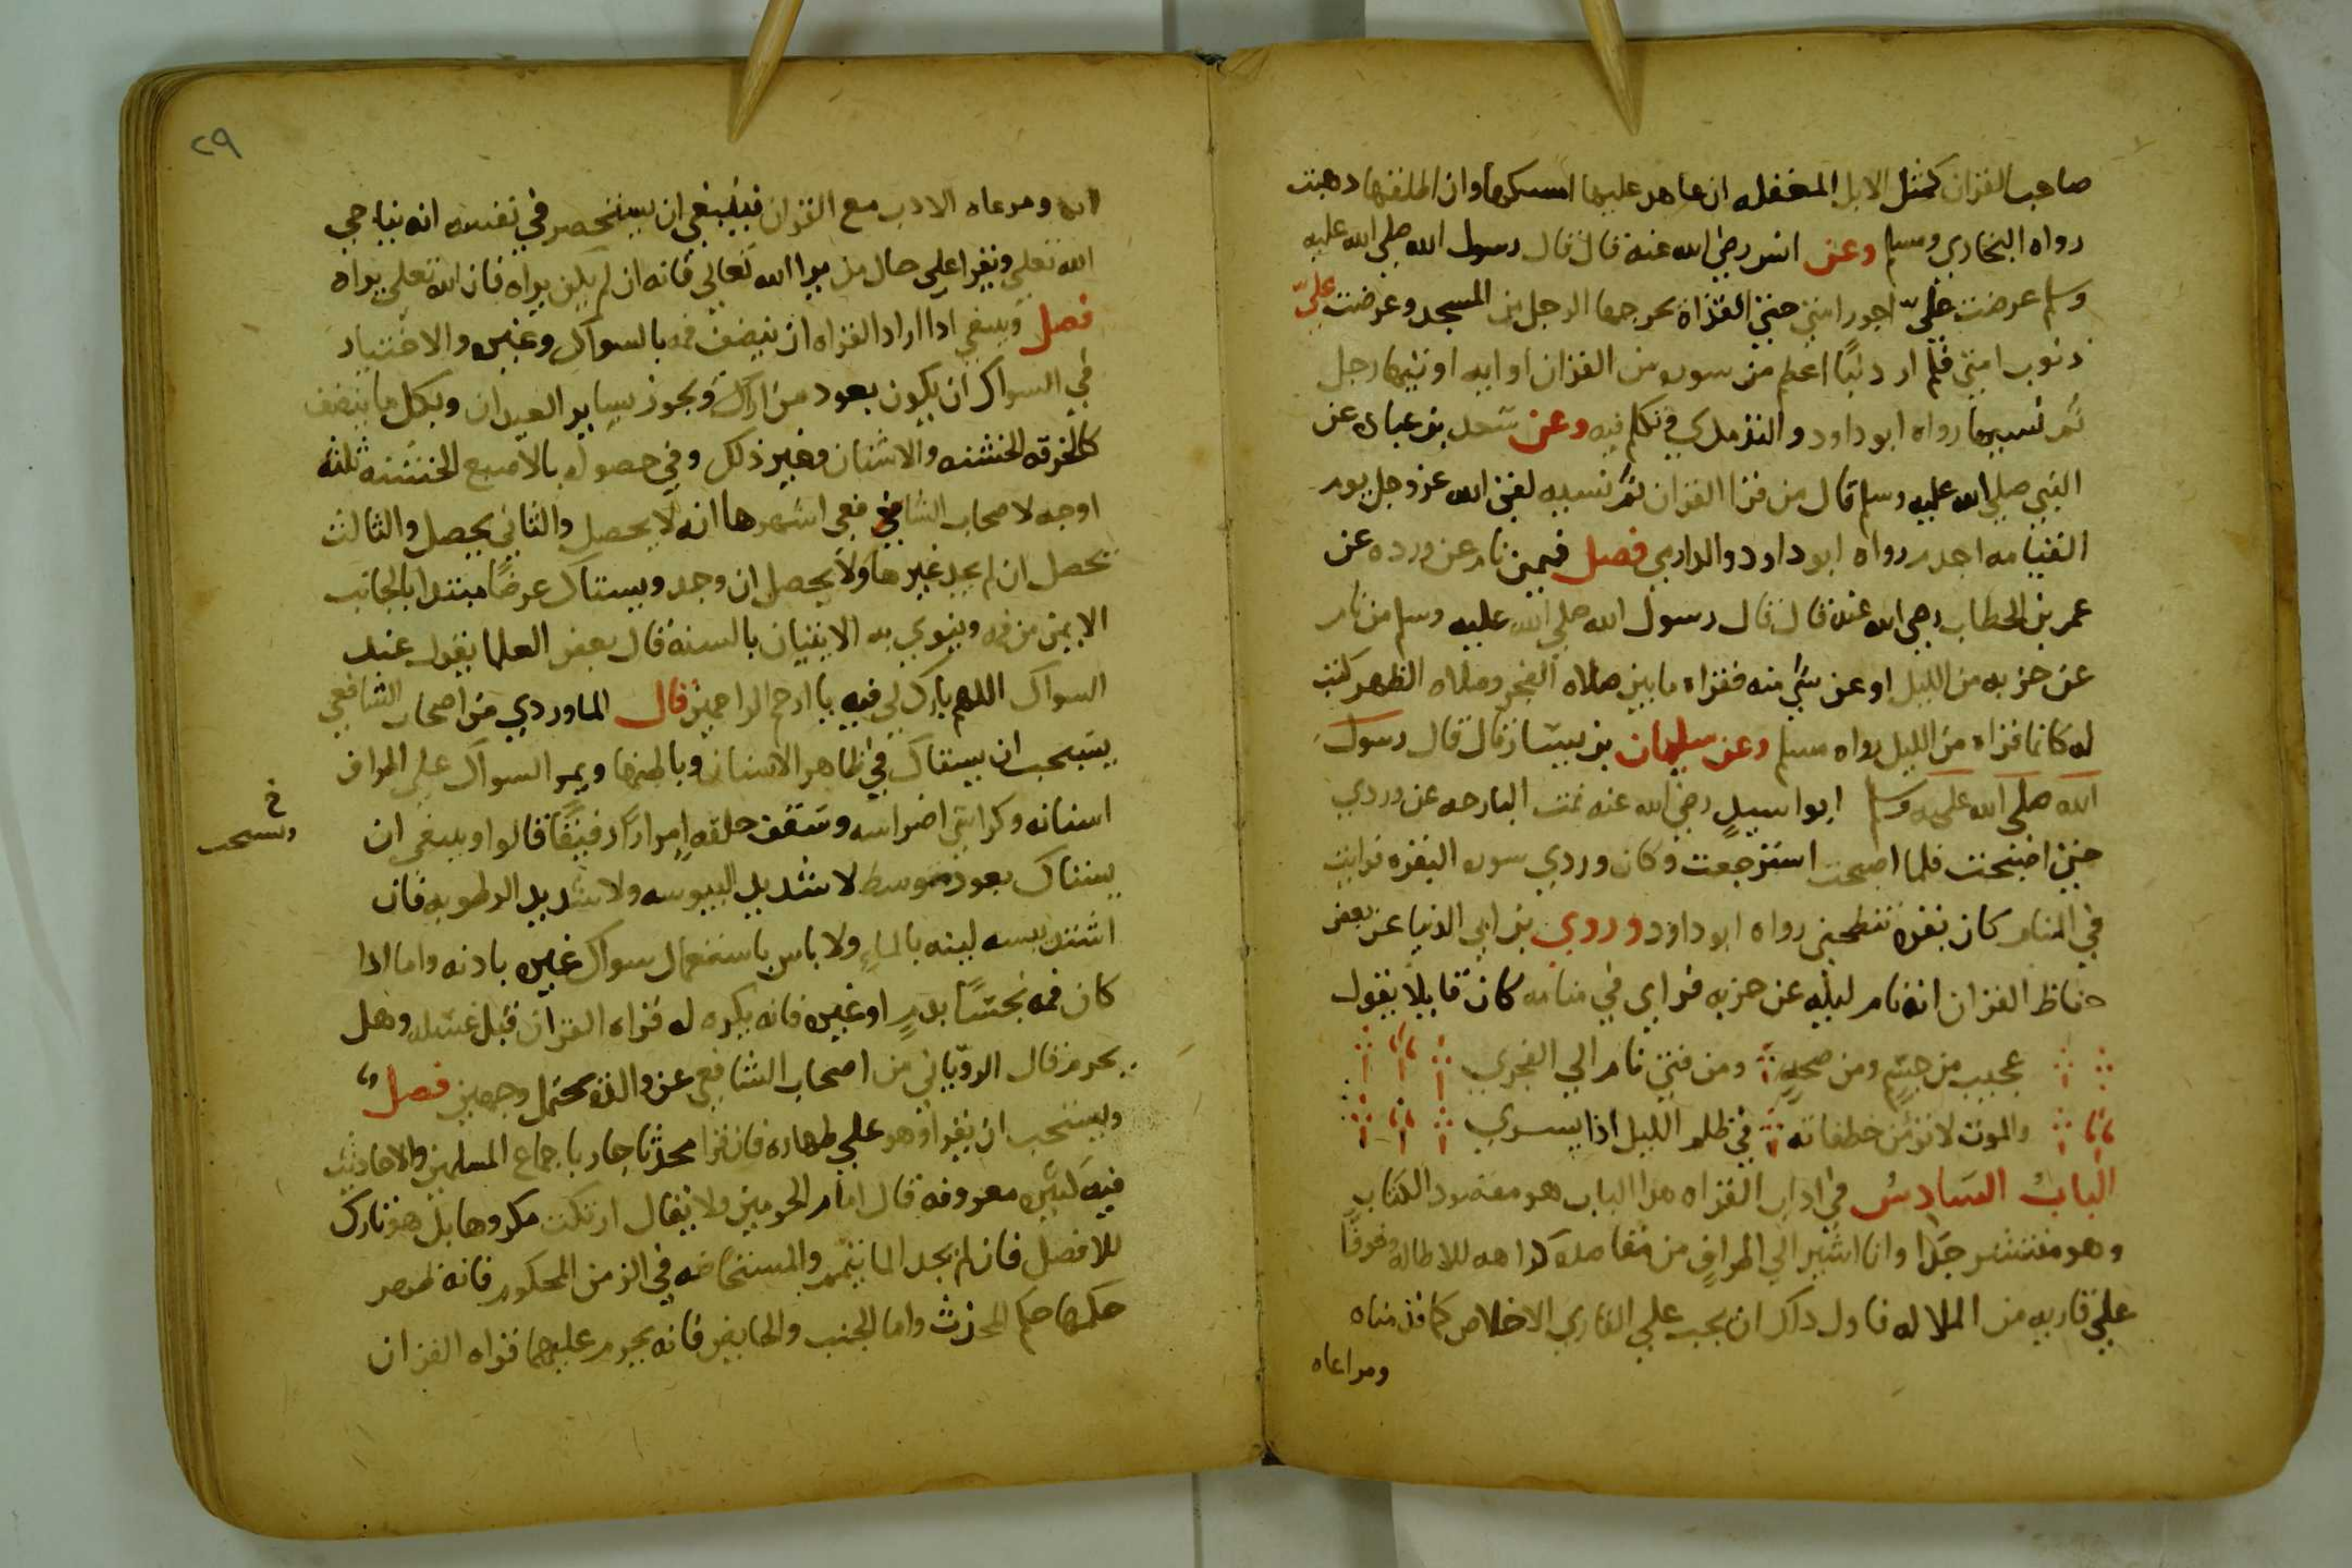 صاحب القران كمثل الابل المعقله ان عاهد عليها امسكها وان اطلقها ذهبت
رواه البخاري ومسلم وعن انس رضي الله عنه قال قال رسول الله صلي الله عليه
وسلم عرضت عليّ اجور امتي حتي القذاة يخرجها الرجل من المسجد وعرضت عليّ
ذنوب امتي فلم ار ذنبًا اعظم من سوره من القران او ايه اوتيها رجل
ثم نسيها رواه ابو داود والترمذي وتكلم فيه وعن سعد بن عباده عن
النبي صلي الله عليه وسلم قال من قرا القران ثم نسيه لقي الله عز وجل يوم
القيامه اجدم رواه ابو داود والدارمي فصل فيمن نام عن ورده عن
عمر بن الخطاب رضي الله عنه قال قال رسول الله صلي الله عليه وسلم من نام
عن حزبه من الليل او عن شي منه فقراه ما بين صلاه الفجر وصلاه الظهر كتب
له كانما قراه من الليل رواه مسلم وعن سليمان بن يسار قال قال رسول
الله صلي الله عليه وسلم ابو اسيدٍ رضي الله عنه نمت البارحه عن وردي
حتي اصبحت فلما اصبحت استرجعت وكان وردي سوره البقره فرايت
في المنام كان بقره تنطحني رواه ابو داود وروي بن ابي الدنيا عن بعض
حفاظ القران انه نام ليله عن حزبه فراي في منامه كان قايلا يقول
عجبت من جسم ومن صحةٍ ومن فتي نام الي الفجري
والموت لا تؤمن خطفاته في ظلم الليل اذا يسري
الباب السادس في اداب القراه هذا الباب هو مقصود الكتاب
وهو منتشر جدًا وانا اشير الي اطرافٍ من مقاصده كراهه للاطاله وخوفًا
علي قاريه من الملاله فاول ذلك ان يجب علي القاري الاخلاص كما قدمناه
ومراعاه
٢٩
ومرعاه الادب مع القران فينبغي ان يستحضر في نفسه انه يناجي
الله تعلي ويقرا علي حال من يرا الله تعالي فانه ان لم يكن يراه فان الله تعلي يراه
فصل وينبغي اذا اراد القراه ان ينضف فمه بالسواك وغيره والاختيار
في السواك ان يكون بعود من اراك ويجوز بساير العيدان وبكل ما ينضف
كالخرقه الخشنه والاشنان وغير ذلك وفي حصوله بالاصبع الخشنه ثلثه
اوجه لاصحاب الشافعي اشهرها انه لا يحصل والثاني يحصل والثالث
يحصل ان لم يجد غيرها ولا يحصل ان وجد ويستاك عرضًا مبتدا بالجانب
الايمن من فمه وينوي به الاتيان بالسنه قال بعض العلما يقول عند
السواك اللهم بارك لي فيه يا ارحم الراحمين قال الماوردي من اصحاب الشافعي
يستحب ان يستاك في ظاهر الاسنان وباطنها ويمر السواك علي اطراف
اسنانه وكراسي اضراسه وسقف حلقه امرارًا رفيقًا قالوا وينبغي ان
خ
ويستحب
يستاك بعود متوسط لا شديد اليبوسه ولا شديد الرطوبه فان
اشتد يبسه لينه بالماءِ ولا باس باستعمال سواك غيره باذنه واما اذا
كان فمه نجسًا بدمٍ او غيره فانه يكره له قراه القران قبل غسله وهل
يحرم قال الروياني من اصحاب الشافعي عن والده يحتمل وجهين فصل
ويستحب ان يقرا وهو علي طهاره فان قرا محدثا جاز باجماع المسلمين والاحاديث
فيه كثيره معروفه قال امام الحرمين ولا يقال ارتكت مكروها بل هو تارك
للافضل فان لم يجد الما تيمم والمستحاضه في الزمن المحكوم فانه طهر
حكمها حكم المحدث واما الجنب والحايض فانه يحرم عليهما قراه القران